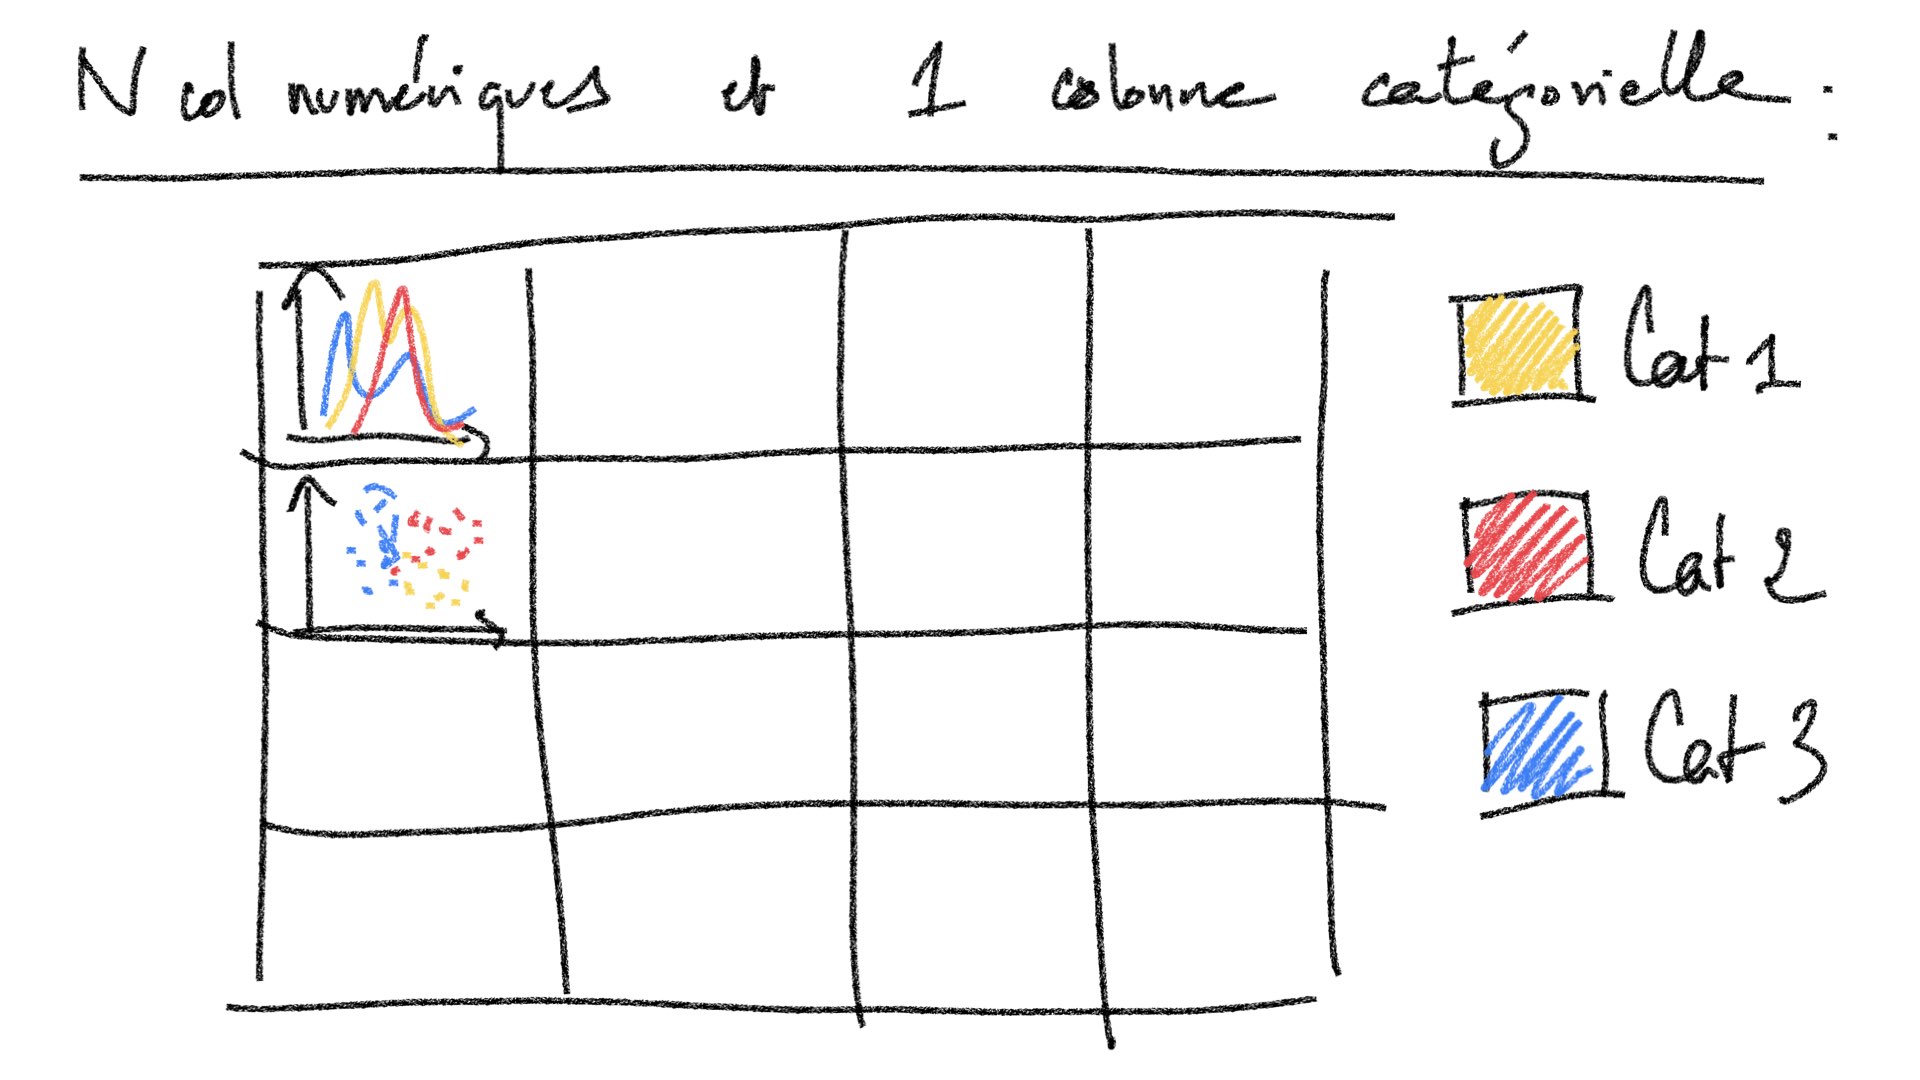 N col numériques et 1 colonne catégorielle :
Cat 1
Cat 2
Cat 3